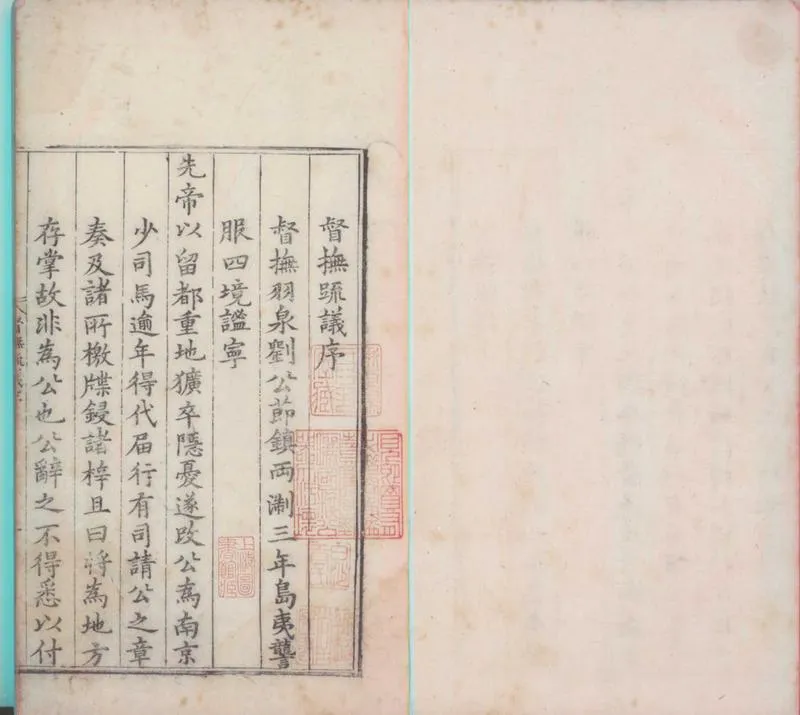 督撫疏議序
督撫羽泉劉公節鎮两淛三年島夷讋
服四境謐寧
先帝以留都重地獷卒隱憂遂改公為南京
少司馬逾年得代届行有司請公之章
奏及諸所檄牒鋟諸梓且曰將為地方
存掌故非為公也公辭之不得悉以付